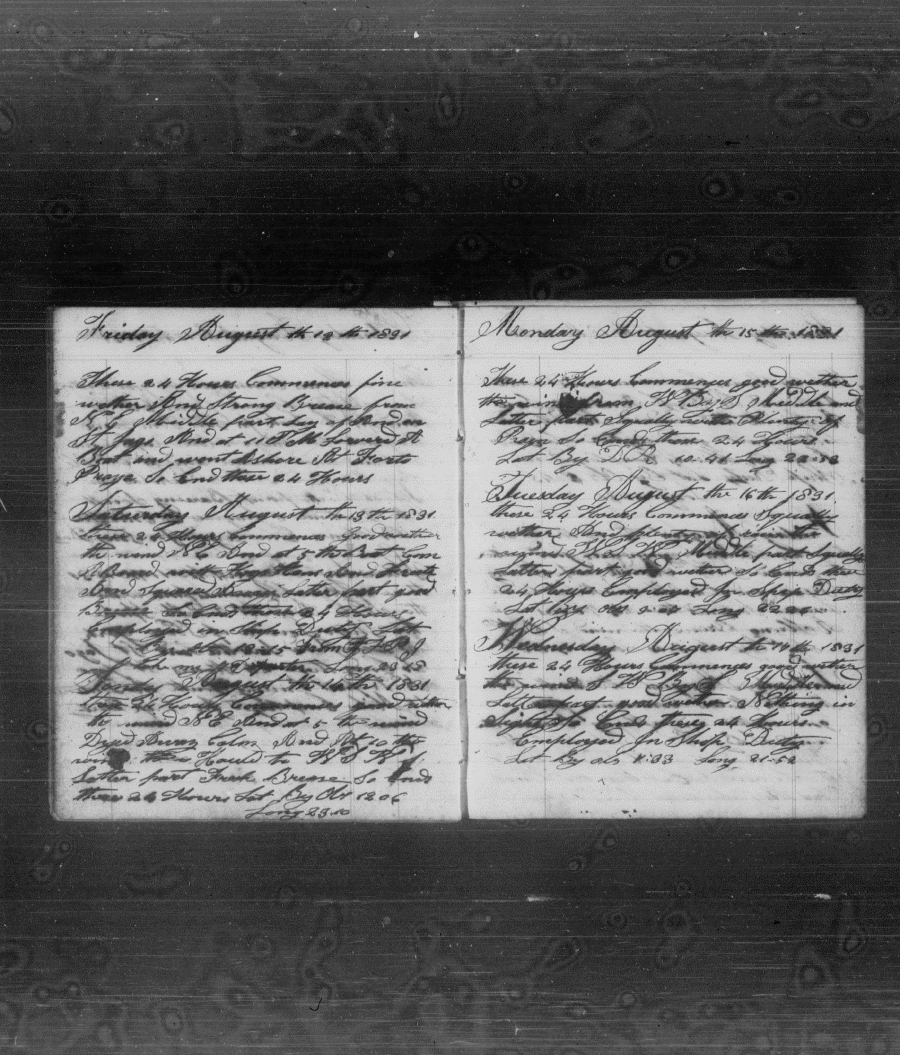 Friday August th 12 th 1831
These 24 Hours Commences fine
wether And Strong Breeze from
N E Middle part Lay of And on
St Jago And at 11 A M Lowerd A
Boat and went Ashore At Porto
Praya So Ends these 24 Hours
Saturday August th 13 th 1831
these 24 Hours commences Good wether
the wind N E And at 5 the Boat Com
A Board with
And Squared Away Latter part good
Breeze So Ends these 24 Hours
Employed in Ships Duty Lat
Long 23 18
Sunday August the 14 th 1831
these 24 Hours Commences good wether
the wind N E And at 5 the wind
Dyed Away Calm And At 10 the
wind Hauld to
Latter part Fresh Breeze So Ends
these 24 Hours Lat By Obs 12 06
Long 23 10
Monday August the 15 th 1831
These 24 Hours Commences good wether
the wind from W By S Middle and
Latter part Squally with Plenty of
So Ends these 24 Hours
Lat By D R 10 41 Long 22
Tuesday August the 16 th 1831
these 24 Hours Commences Squally
wether And plenty of rain the
wind Middle part Squally
Latter part good wether So Ends these
24 Hours Employed In Ships Duty
Lat by Obs Long 22
Wednesday August the 17 th 1831
these 24 Hours Commences good wether
the wind S W By S Middle and
Latter part good wether Nothing in
Sight So Ends these 24 Hours
Employed In Ships Duty
Lat By Obs Long 21 52